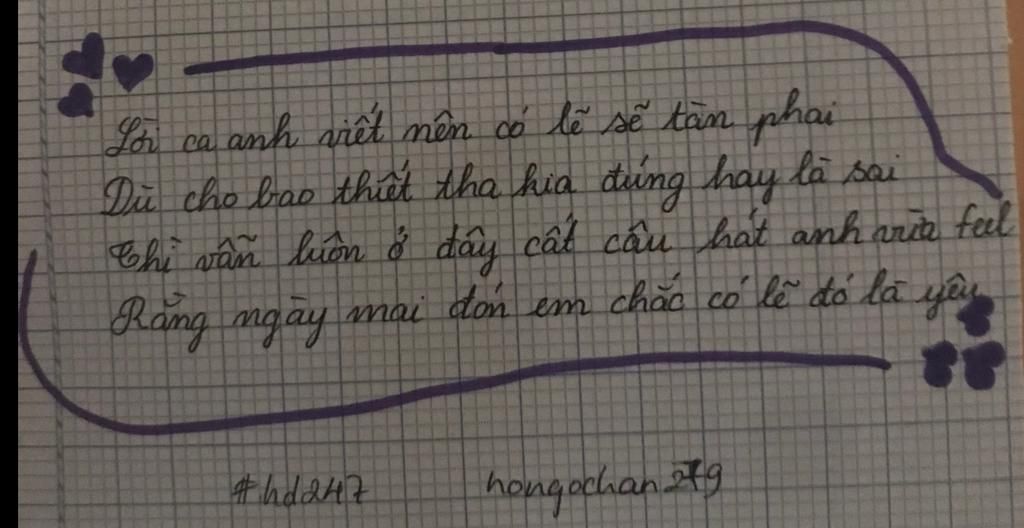 Lời ca anh viết nên có lẽ sẽ tàn phai
Dù cho bao thiết tha kia đúng hay là sai
Thì vẫn luôn ở đây cất câu hát anh vừa feel
Rằng ngày mai đón em chắc có lẽ đó là yêu
#hd247 hongochan279